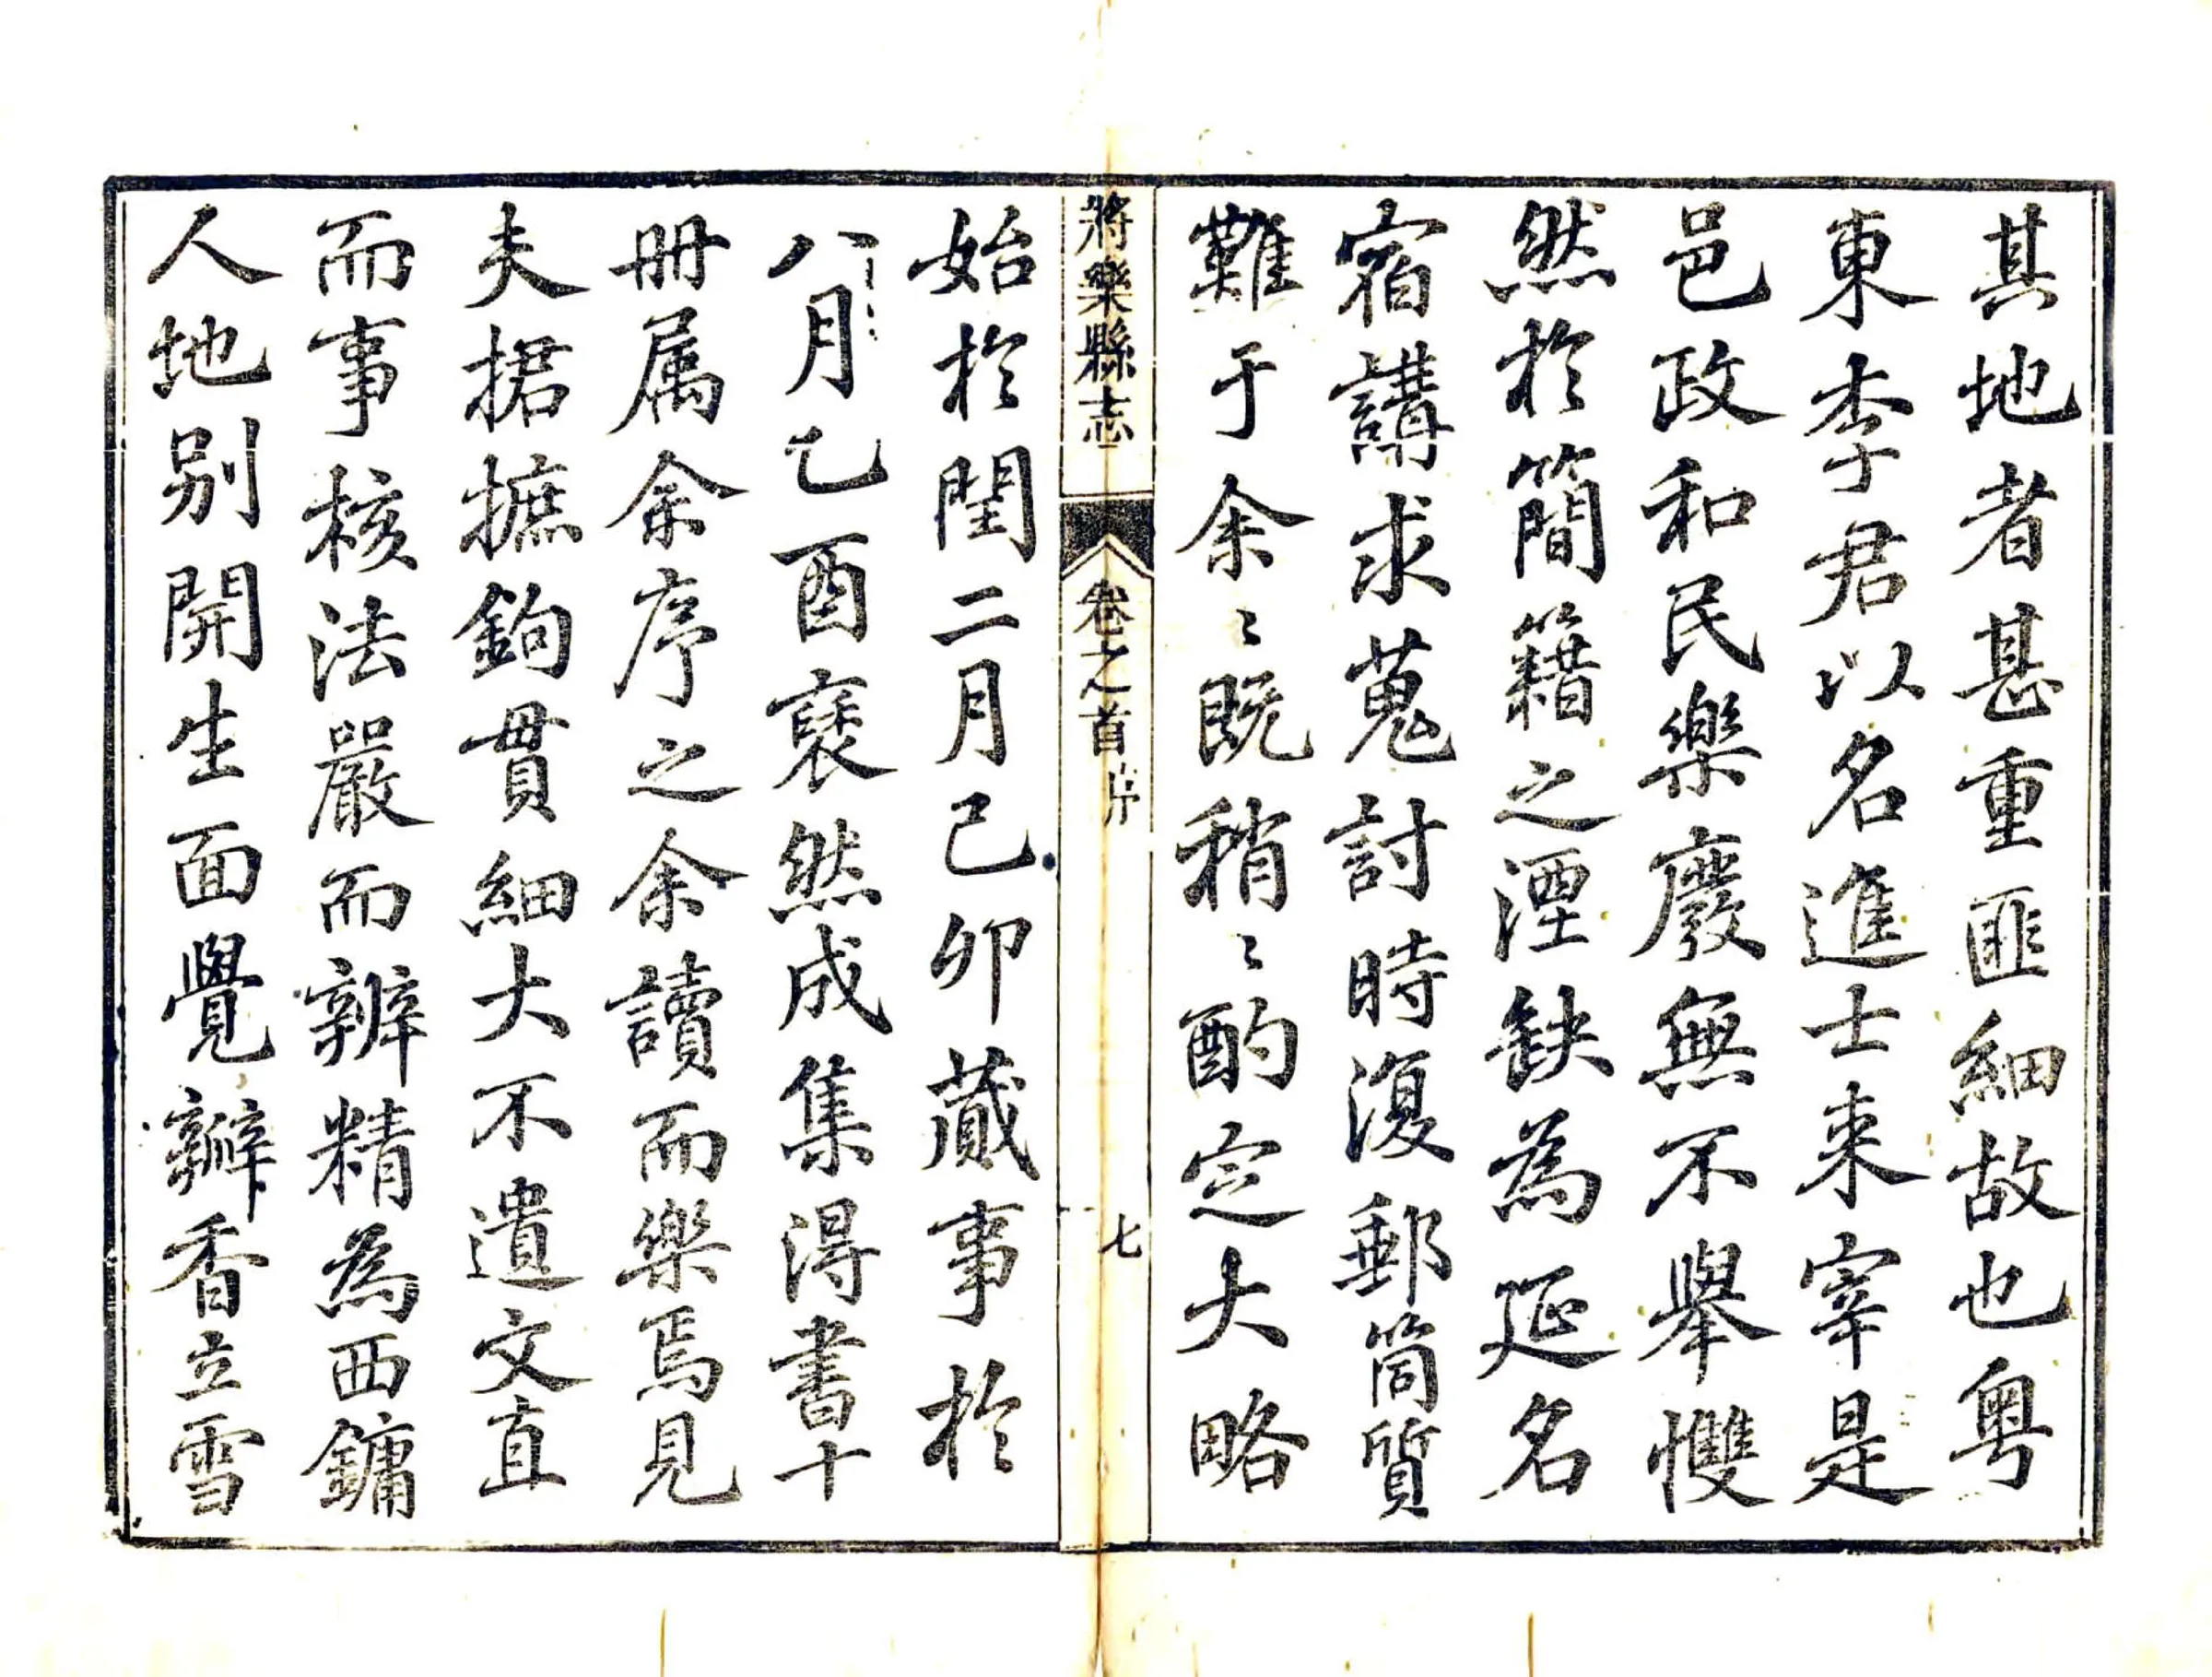 其地者甚重匪細故也粤
東李君以名進士来宰是
邑政和民樂廢無不舉慨
然於簡籍之湮缺為延名
宿講求蒐討時復郵筒質
難于余〻既稍〻酌定大略
將樂縣志 卷之首 序 七
始於閏二月己卯蕆事於
八月乙酉裒然成集得書十
冊属余序之余讀而樂焉見
夫捃摭鉤貫細大不遺文直
而事核法嚴而辨精為西鏞
人地別開生面覺瓣香立雪